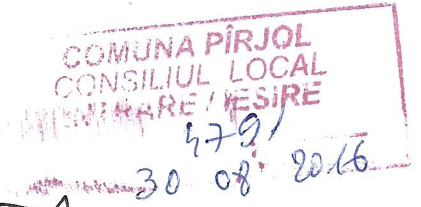 COMUNA PÎRJOL
CONSILIUL LOCAL
INTRARE / IEȘIRE
4791
30 08 2016